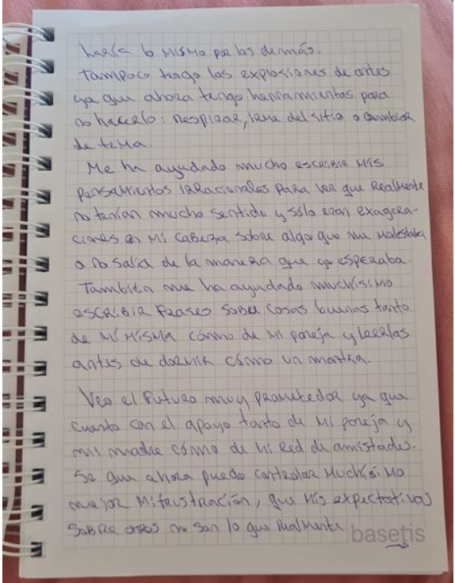 haría lo mismo por los demás.
Tampoco tengo las explosiones de antes
ya que ahora tengo herramientas para
no hacerlo: respirar, irme del sitio o cambiar
de tema.
Me ha ayudado mucho escribir mis
pensamientos irracionales para ver que realmente
no tenían mucho sentido y sólo eran exagera-
ciones en mi cabeza sobre algo que me molestaba
o no salía de la manera que yo esperaba.
También me ha ayudado muchísimo
escribir frases sobre cosas buenas tanto
de mí misma cómo de mi pareja y leerlas
antes de dormir cómo un mantra.
Veo el futuro muy prometedor ya que
cuento con el apoyo tanto de mi pareja y
mi madre cómo de mi red de amistades.
Se que ahora puedo controlar muchísimo
mejor mi frustración, que mis expectativas
sobre otros no son lo que realmente
basetis